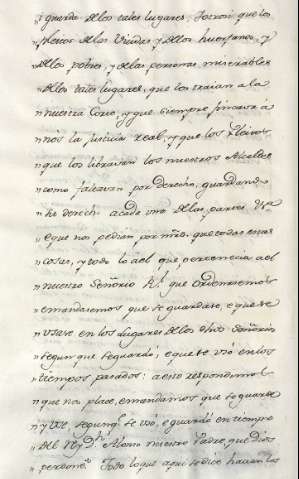 "guarda de los tales lugares, fuesen que los
pleitos de los Viudas, y de los huerfanos, y
"de los pobres, y de las personas miserables
"de los tales lugares, que los traian a la
"nuestra Corte, y que siempre fincase à
"nos la justicia real, y que los Pleitos,
que los librasen los nuestros Alcaldes
"como fallasen por derecho, guardando
"he derecho a cada uno de las partes
"e que nos pedian, por mrd, que todas estas
cosas, y todo lo àl que pertenencia a el
"nuestro Señorio Rl. que Ordenasemos
e mandasemos que se guardase, e que se
"usase en los lugares de los dhos Señorios
"segun que se guardó, e que se usó en los
"tiempos pasados: a esto respondemos
"que nos place, e mandamos que se guarde
"y use, segun q.e se usó, e guardó en tiempo
del Rey D.n Alonso nuestro Padre, que Dios
"perdone". Todo lo que aqui se dice hacian los